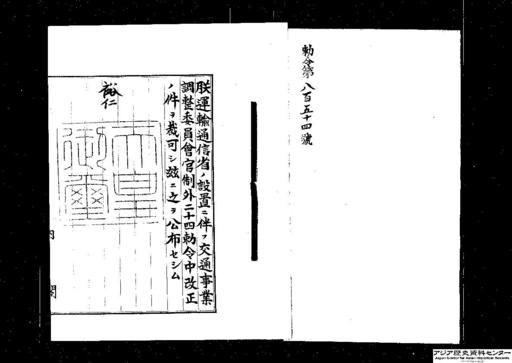 勅令第八百五十四號
朕運輸通信省ノ設置ニ伴フ交通事業
調整委員會官制外二十四勅令中改正
ノ件ヲ裁可シ茲ニ之ヲ公布セシム
裕仁
天皇
御璽
内閣
アジア歴史資料センター
Japan Center for Asian Historical Records